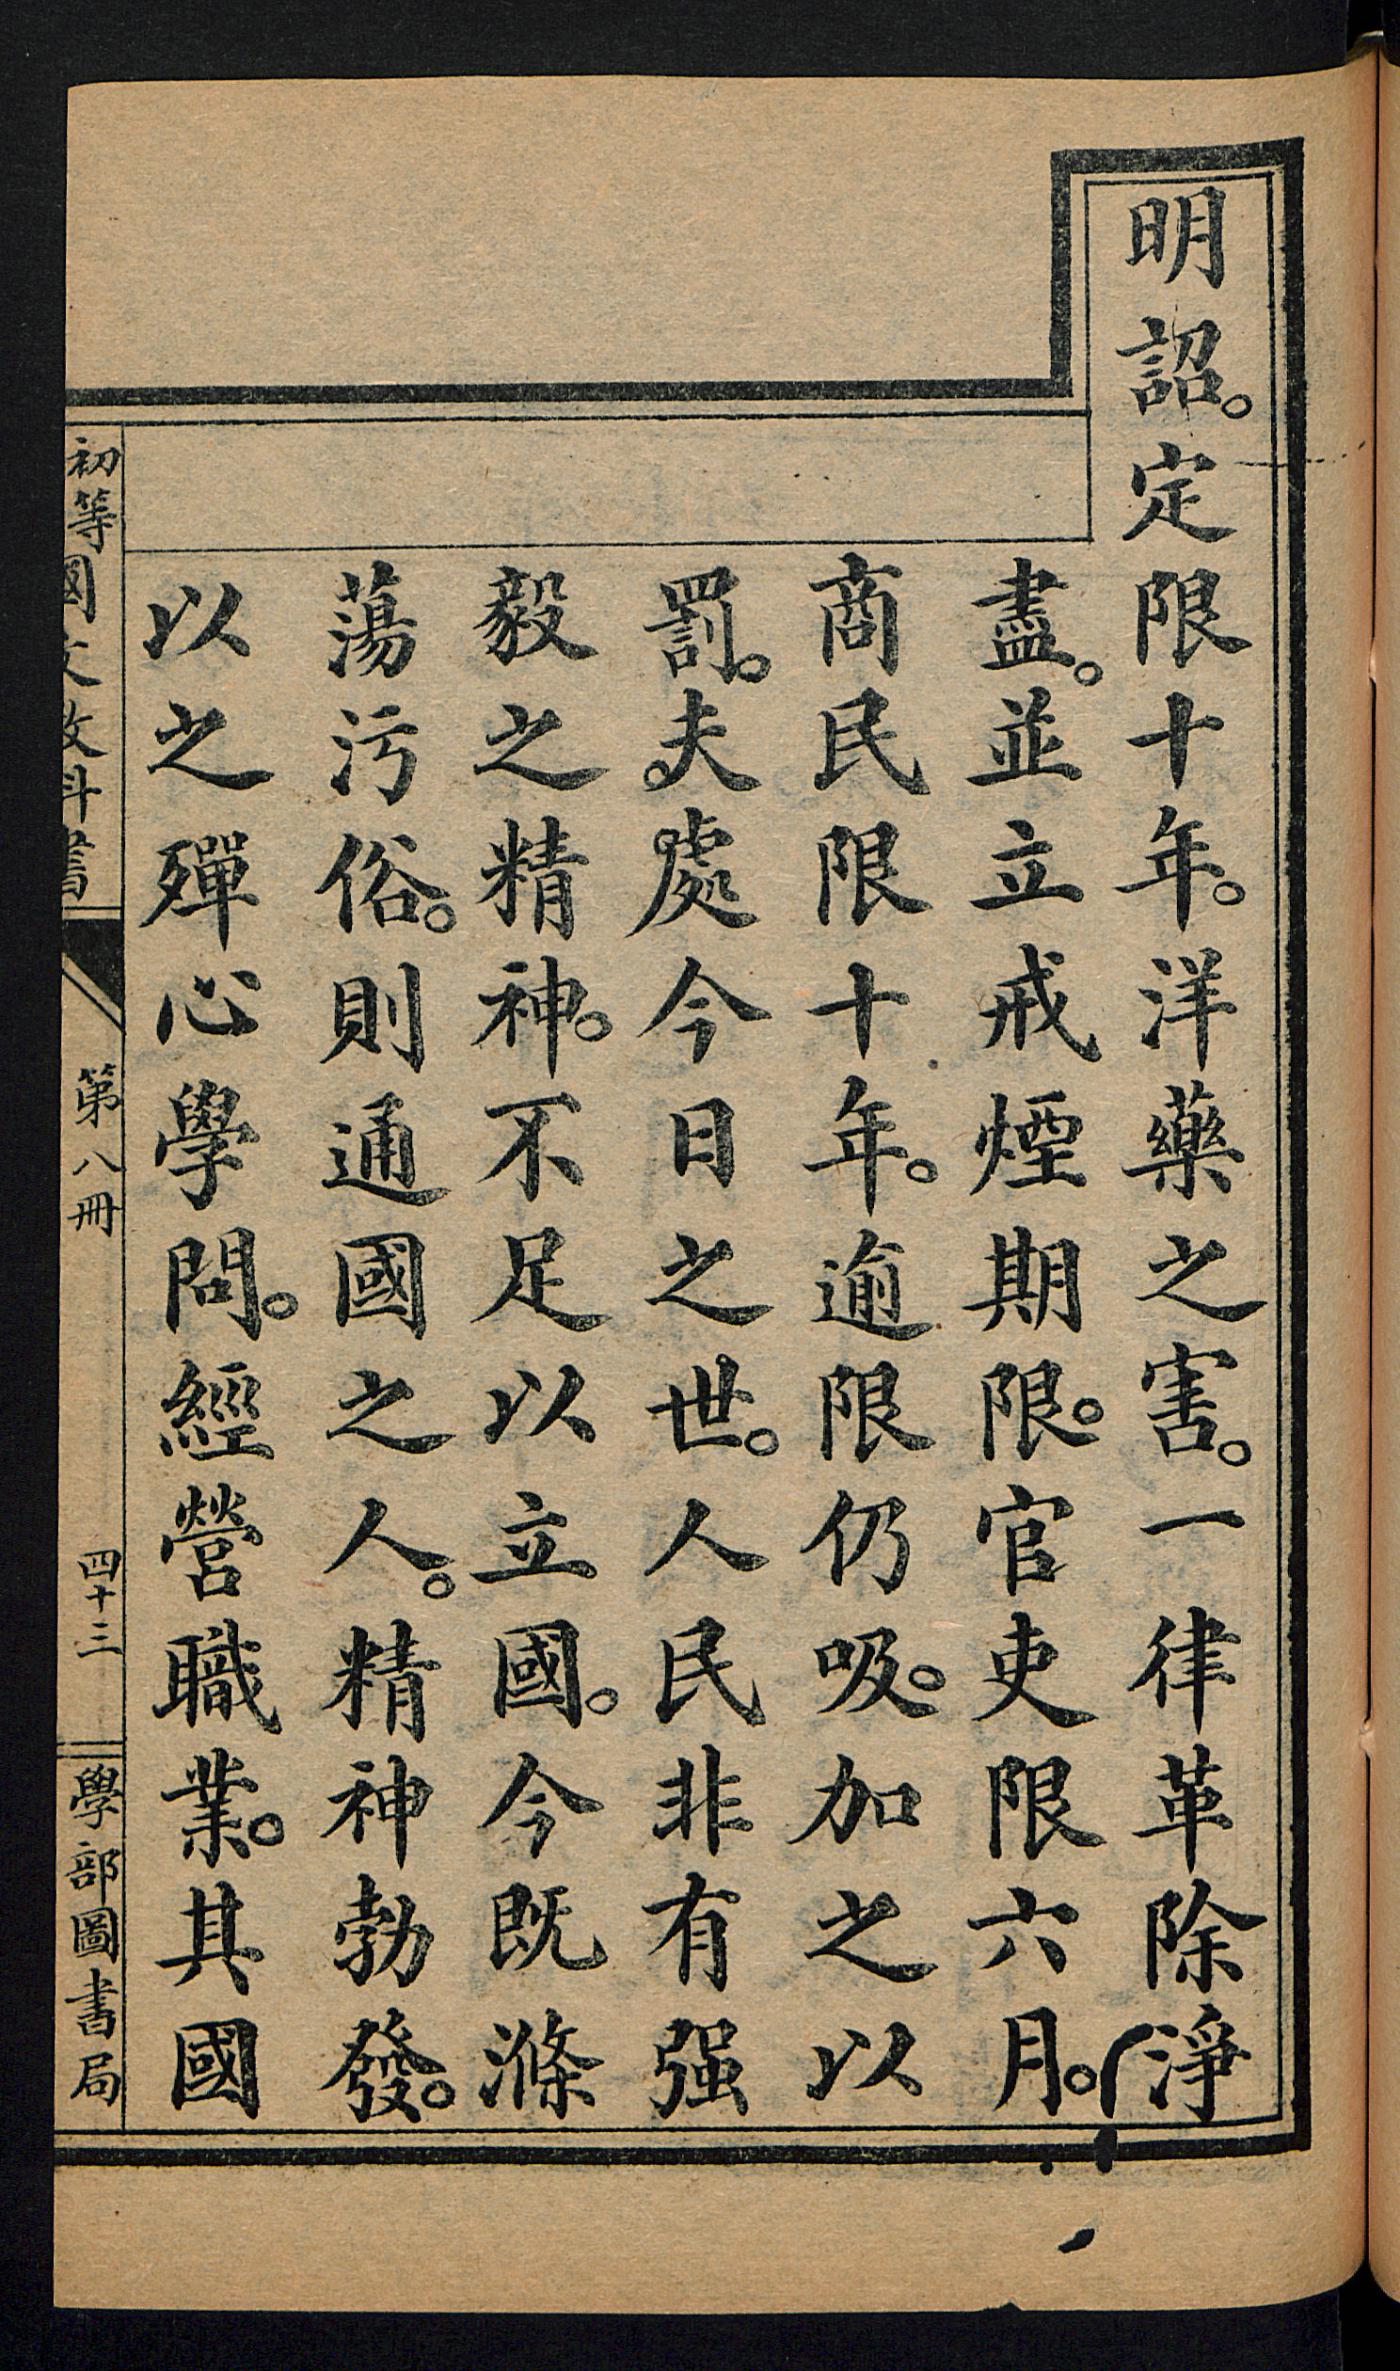 明詔。定限十年。洋藥之害。一律革除淨
盡。並立戒煙期限。官吏限六月。
商民限十年。逾限仍吸。加之以
罰。夫處今日之世。人民非有强
毅之精神。不足以立國。今既滌
蕩污俗。則通國之人。精神勃發。
以之殫心學問。經營職業。其國
初等國文教科書
第八冊
四十三
學部圖書局